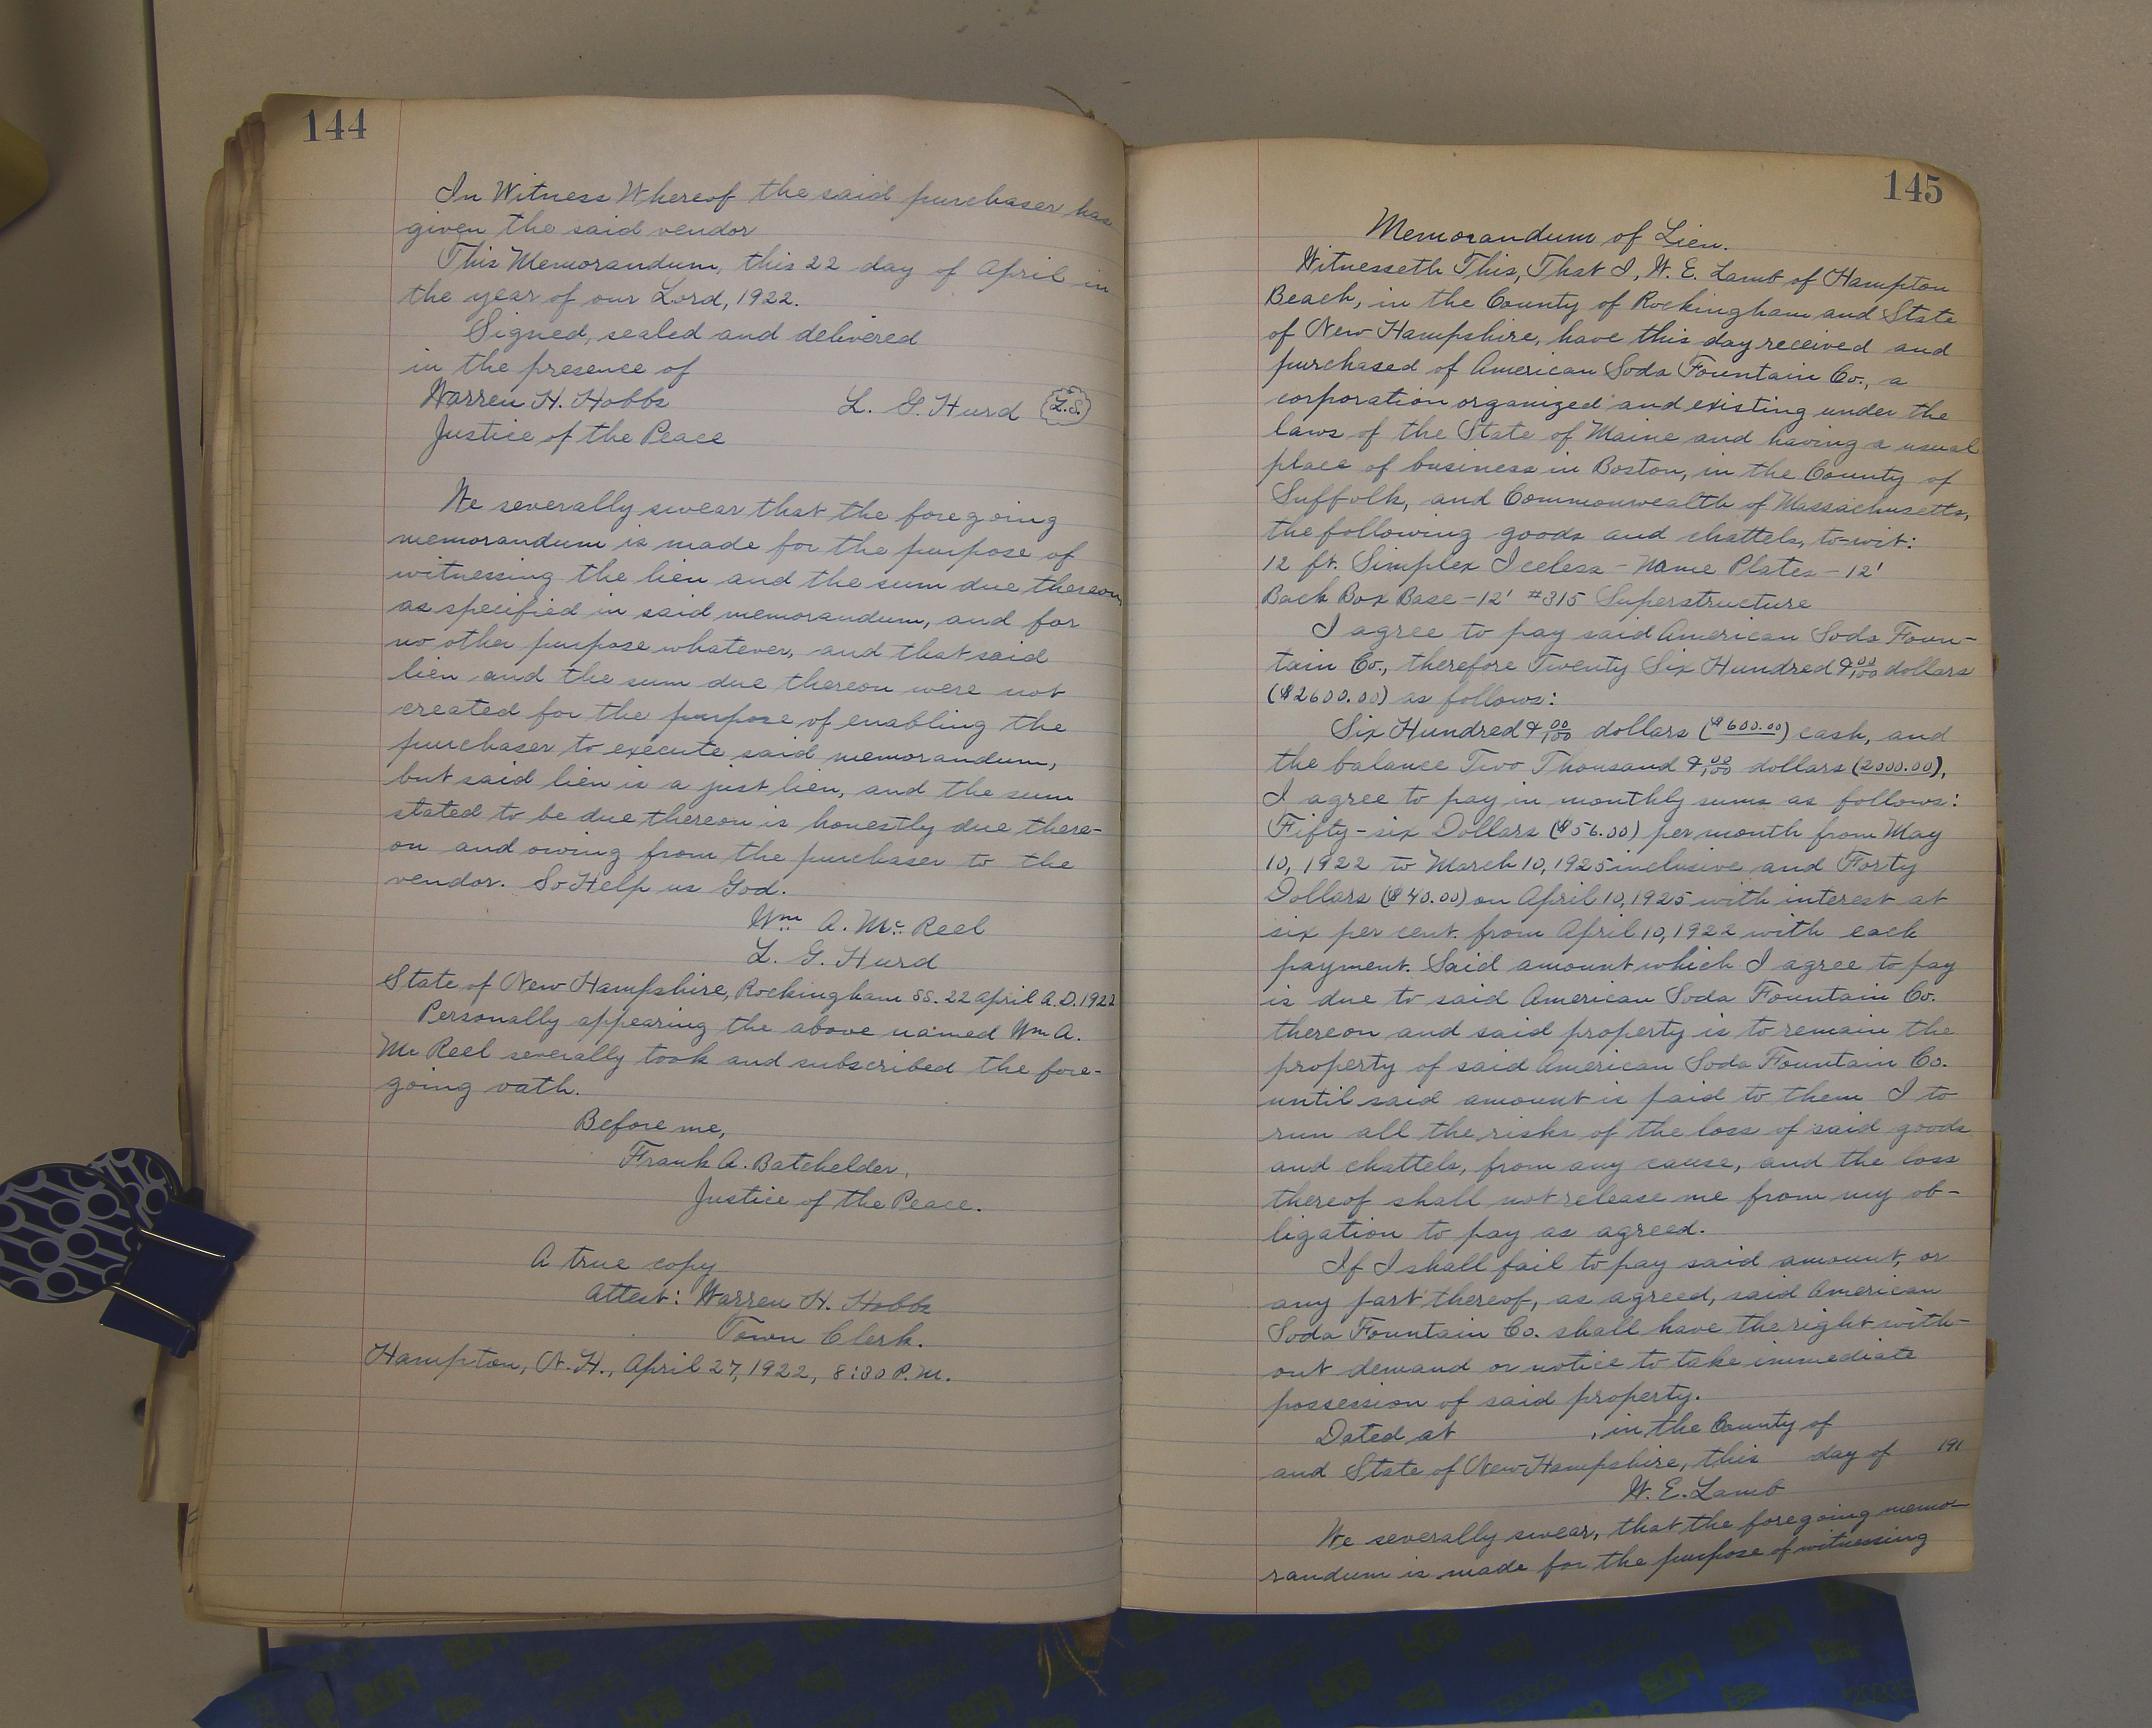 144
In Witness Whereof the said purchaser has
given the said vendor
This Memorandum, this 22 day of April in
the year of our Lord, 1922.
Signed, sealed and delivered
in the presence of
Warren H. Hobbs L. G. Hurd L.S.
Justice of the Peace
We severally swear that the foregoing
memorandum is made for the purpose of
witnessing the lien and the sum due thereon
as specified in said memorandum, and for
no other purpose whatever, and that said
lien and the sum due thereon were not
created for the purpose of enabling the
purchaser to execute said memorandum,
but said lien is a just lien, and the sum
stated to be due thereon is honestly due there-
on and owing from the purchaser to the
vendor. So Help us God.
Wm A. Mc Reel
L. G. Hurd
State of New Hampshire, Rockingham SS. 22 April A.D. 1922
Personally appearing the above named Wm A.
Mc Reel severally took and subscribed the fore-
going oath.
Before me,
Frank A. Batchelder,
Justice of the Peace.
A true copy
Attest: Warren H. Hobbs
Town Clerk.
Hampton, N.H., April 27, 1922, 8:30 P.M.
145
Memorandum of Lien.
Witnesseth This, That I, W. E. Lamb of Hampton
Beach, in the County of Rockingham and State
of New Hampshire, have this day received and
purchased of American Soda Fountain Co., a
corporation organized and existing under the
laws of the State of Maine and having a usual
place of business in Boston, in the County of
Suffolk, and Commonwealth of Massachusetts,
the following goods and chattels, to-wit:
12 ft. Simplex Iceless - Name Plates - 12'
Back Box Base - 12' #315 Superstructure
I agree to pay said American Soda Foun-
tain Co., therefore Twenty Six Hundred & 00/100 dollars
($2600.00) as follows:
Six Hundred & 00/100 dollars ($600.00) cash, and
the balance Two Thousand & 00/100 dollars (2000.00),
I agree to pay in monthly sums as follows:
Fifty-six Dollars ($56.00) per month from May
10, 1922 to March 10, 1925 inclusive and Forty
Dollars ($40.00) on April 10, 1925 with interest at
six per cent. from April 10, 1922 with each
payment. Said amount which I agree to pay
is due to said American Soda Fountain Co.
thereon and said property is to remain the
property of said American Soda Fountain Co.
until said amount is paid to them I to
run all the risks of the loss of said goods
and chattels, from any cause, and the loss
thereof shall not release me from my ob-
ligation to pay as agreed.
If I shall fail to pay said amount, or
any part thereof, as agreed, said American
Soda Fountain Co. shall have the right with-
out demand or notice to take immediate
possession of said property.
Dated at , in the County of
and State of New Hampshire, this day of 191
W. E. Lamb
We severally swear, that the foregoing memo-
randum is made for the purpose of witnessing